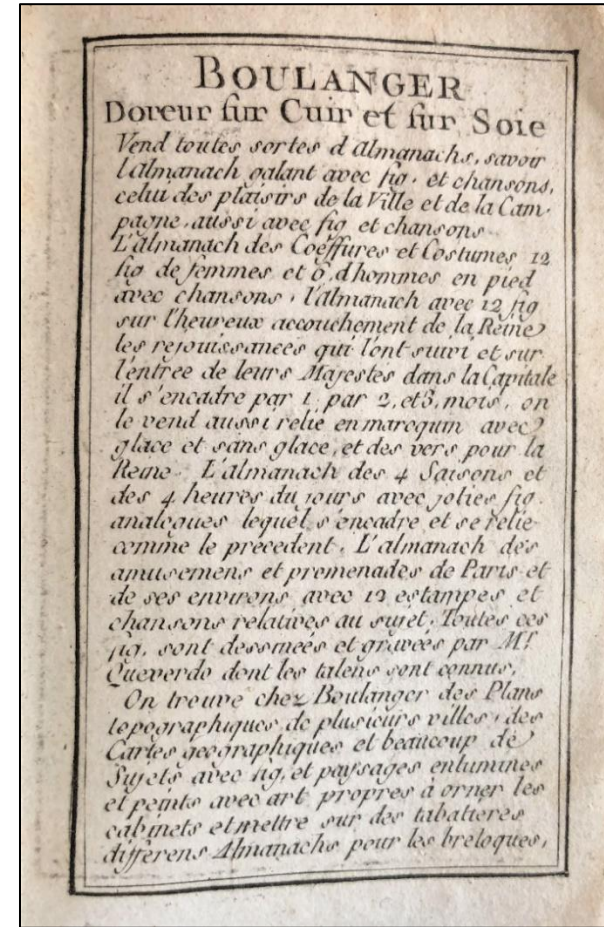 BOULANGER
Doreur sur Cuir et sur Soie
Vend toutes sortes d'Almanachs, savoir
l'Almanach galant avec fig. et chansons,
celui des plaisirs de la Ville et de la Cam-
pagne, aussi avec fig et chansons.
L'Almanach des Coëffures et Costumes 12
fig de femmes et 6 d'hommes en pied
avec chansons, l'almanach avec 12 fig
sur l'heureux accouchement de la Reine
les rejouissances qui l'ont suivi et sur
l'entree de leurs Majestes dans la Capitale
il s'encadre par 1, par 2, et 3, mois, on
le vend aussi relié en maroquin avec
glace et sans glace, et des vers pour la
Reine. L'almanach des 4 Saisons et
des 4 heures du jours avec jolies fig.
analogues lequel s'encadre et se relie
comme le precedent. L'almanach des
amusemens et promenades de Paris et
de ses environs avec 12 estampes et
chansons relatives au sujet. Toutes ces
fig. sont dessineés et gravées par Mr
Queverdo dont les talens sont connus.
On trouve chez Boulanger des Plans
topographiques de plusieurs villes, des
Cartes geographiques et beaucoup de
Sujets avec fig, et paysages enlumines
et peints avec art propres a orner les
cabinets et mettre sur des tabatieres
differens Almanachs pour les breloques,